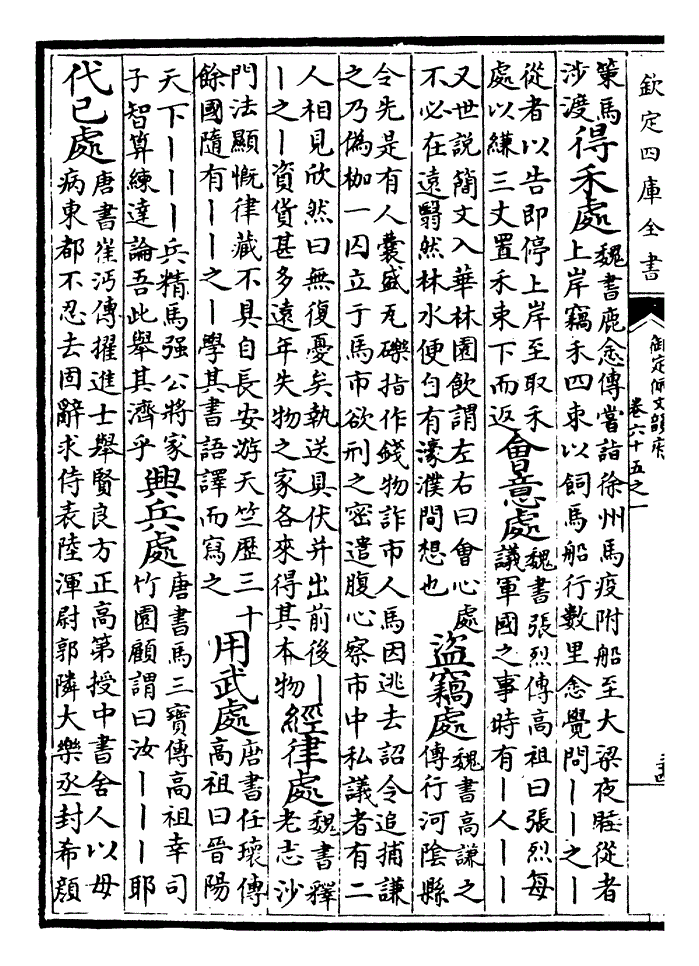 欽定四庫全書
御定佩文韻府
卷六十五之一
策馬
涉渡
得禾處
魏書鹿悆傳嘗詣徐州馬疫附船至大梁夜睡從者
上岸竊禾四束以飼馬船行數里悆覺問丨丨之丨
從者以告即停上岸至取禾
處以縑三丈置禾束下而返
會意處
魏書張烈傳高祖曰張烈每
議軍國之事時有丨人丨丨
又世說簡文入華林園飲謂左右曰會心處
不必在遠翳然林水便自有濠濮間想也
盜竊處
魏書高謙之
傳行河陰縣
令先是有人囊盛瓦礫指作錢物詐市人馬因逃去詔令追捕謙
之乃偽枷一囚立于馬市欲刑之密遣腹心察市中私議者有二
人相見欣然曰無復憂矣執送具伏并出前後丨
丨之丨資貨甚多遠年失物之家各來得其本物
經律處
魏書釋
老志沙
門法顯慨律藏不具自長安游天竺歷三十
餘國隨有丨丨之丨學其書語譯而寫之
用武處
唐書任瓌傳
高祖曰晉陽
天下丨丨丨兵精馬强公將家
子智算練達論吾此舉其濟乎
興兵處
唐書馬三寶傳高祖幸司
竹園顧謂曰汝丨丨丨耶
代已處
唐書崔沔傳擢進士舉賢良方正高第授中書舍人以母
病東都不忍去固辭求侍表陸渾尉郭隣大樂丞封希顔